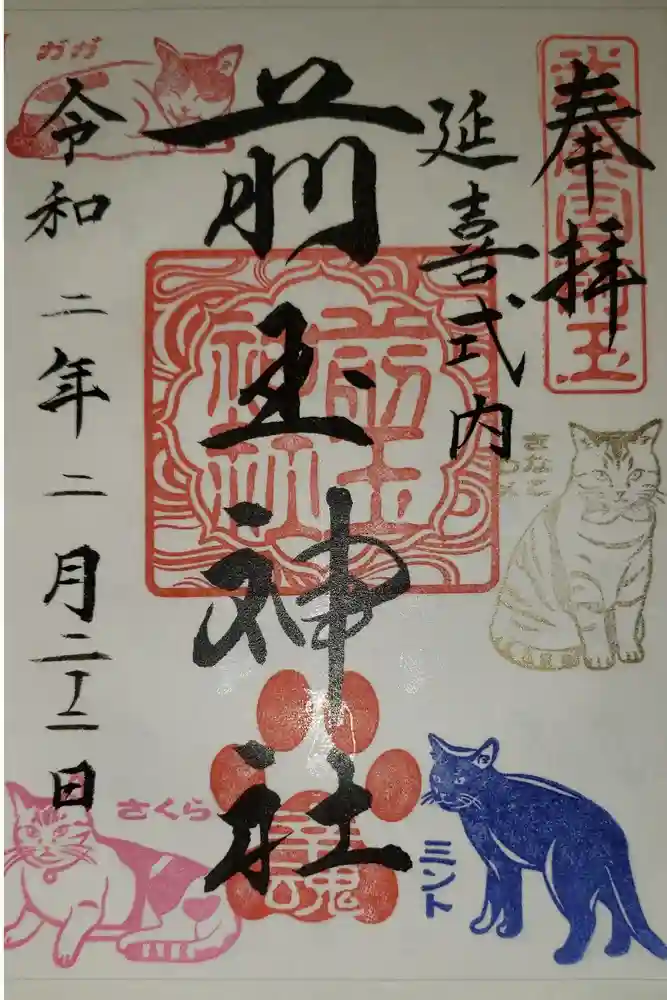 奉拝
きなこ
ミント
延喜式内
前玉神社
前玉
神社
幸魂
さくら
ガガ
令和二年二月二十二日